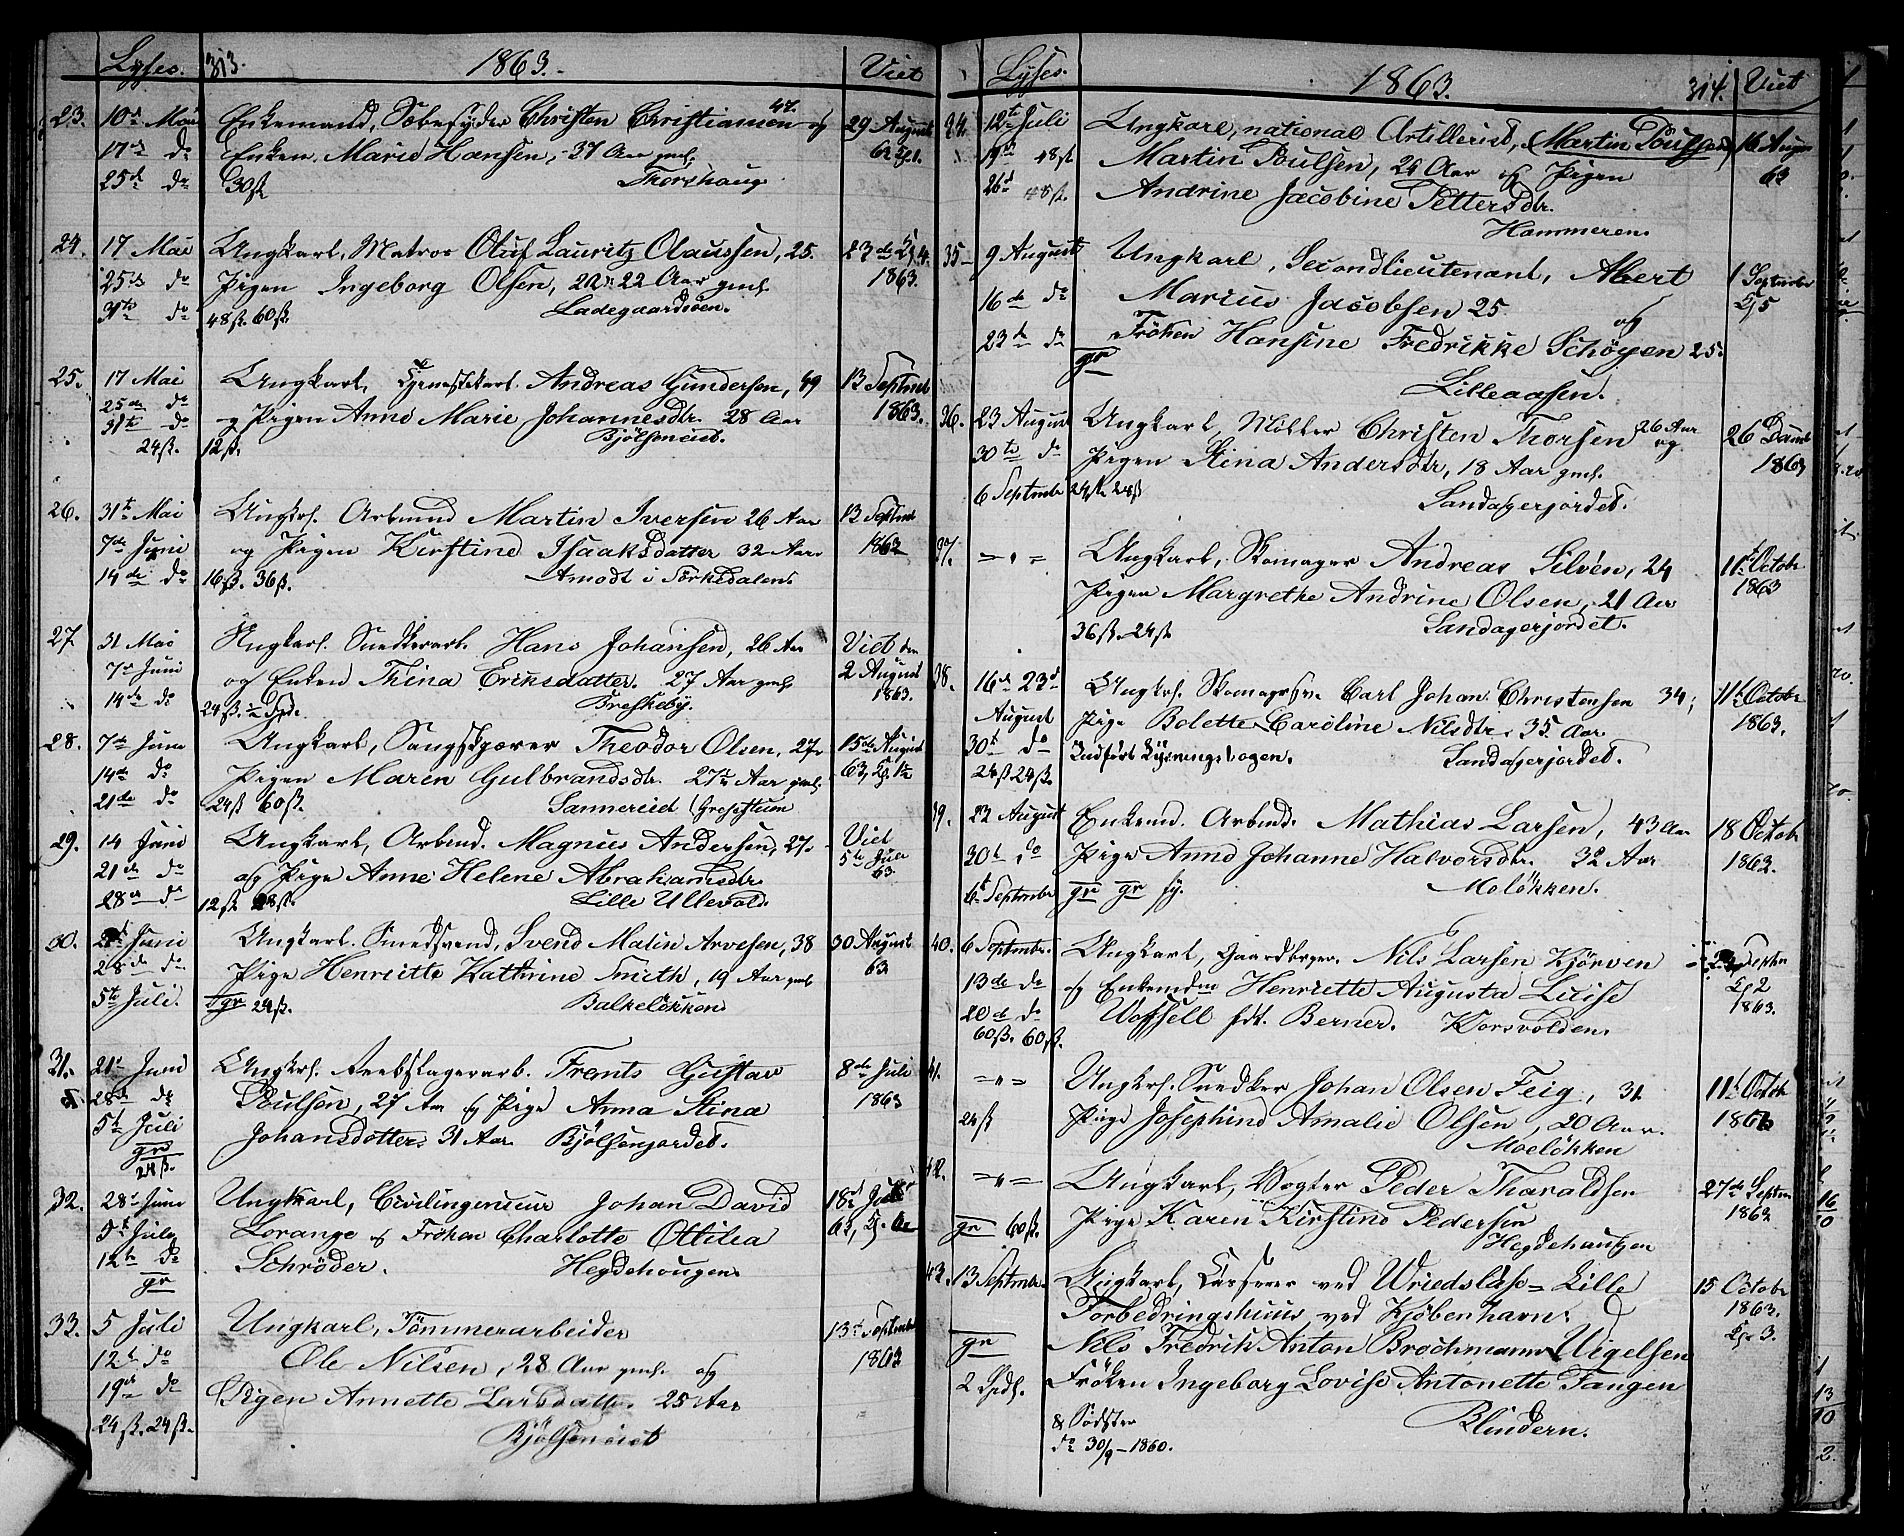 Lyses. 313. 1863. Viet
23. 10de Mai Enkemand, Sæbesyder Christen Christiansen 47. og 29 August
17de do Enken Marie Hansen, 37 Aar gml.
25de do 30ß Thorshaug
24. 17 Mai Ungkarl, Matros Oluf Lauritz Olaussen, 25. 23de
25de do Pigen Ingeborg Olsen, 22 Aar gml. 1863.
31te do 48ß. 60ß. Ladegaardsøen.
25. 17 Mai Ungkarl, Tjenestekarl Andreas Gundersen, 49 13 Septmbr
25de do og Pigen Anne Marie Johannesdtr. 28 Aar 1863.
31te do Bjølseneiet.
24ß. 12ß.
26. 31te Mai Ungkrl. Arbmnd Martin Iversen 26 Aar 13 Septmbr
7de Juni og Pigen Kirstine Isaaksdatter 32 Aar 1863
14de do 16ß. 36ß. Amodt i Sørkedalen
27 31 Mai Ungkarl. Snedkerarb. Hans Johansen, 26 Aar Viet den
7de Juni og Enken Thina Eriksdatter. 27 Aar gml. 2 August
14de do 24ß. Breskeby. 1863.
28. 7de Juni Ungkarl, Theodor Olsen, 27 15de August
14de do Pigen Maren Gulbrandsdtr. 27 Aar gml. 63
21de do 24ß 60ß. Sannereiet (Grefstum
29. 14 Juni Ungkarl, Arbmd. Magnus Andersen, 27. Viet
21de do og Pige Anne Helene Abrahamsdtr. 5te Juli
28de do 12ß Lille Ullevold. 63.
30. 21de Juni Ungkarl. Smedsvend, Svend Malin Arvesen, 38 30 August
28de do Pige Henriette Kathrine Smith, 19 Aar gml 63
5te Juli. gr 24ß. Balkeløkken
31. 21de Juni Ungkrl. Reebslagerarb. Frents Gustav 8de Juli
28de do Poulsen, 27 Aar og Pige Anna Stina 1863
5te Juli Johansdotter. 31 Aar. Bjølsenjordet.
gr
24ß.
32. 28de Juni Ungkarl, Civilingenieur Johan David 18de Juli
5te July Lorange og Frøken Charlotte Ottilea 63,
12te do Schrøder. Hegdehougen
gr
33. 5 Juli Ungkarl, Tømmerarbeider 13de Septmbr
12te do Ole Nilsen, 28 Aar gml. og 1863
19de do Pigen Annette Larsdatter 25 Aar
24ß. 24ß. Bjølseneiet
Lyses. 1863. 314. Viet
34. 12te Juli Ungkarl, national Artillerist, (Martin Poulsen) 16 August
19de 48ß Martin Poulsen, 26 Aar og Pigen 63
26de 48ß. Andrine Jacobine Pettersdtr.
Hammeren.
35 9 August Ungkarl, Secondlieutenant, Albert 1 Septmber
16de do Marius Jacobsen 25. og
23de do Frøken Hansine Fredrikke Schøyen 25.
gr Lilleaasen.
36. 23 August Ungkarl, Møller Christen Thorsen 26 Aar og
30te do Pigen Stina Andersdtr, 18 Aar gml. 1863
6 Septmber 24ß 24ß Sandagerjordet.
37. — " — Ungkarl, Skomager Andreas Silvén, 24 11te Octobr
Pigen Margrethe Andrine Olsen, 21 Aar 1863
36ß. 24ß Sandagerjordet.
38. 16de 23de Ungkrl. Skomagersv. Carl Johan Christensen 34, 11te Octobr
August Pige Bolette Caroline Nilsdtr. 35 Aar 1863.
30te do Indført Lysningsbogen. Sandagerjordet.
24ß 24ß.
39. 23 August Enkemd. Arbmd. Mathias Larsen, 43 Aar 18 Octobr
30te do Pige Anne Johanne Halvorsdtr. 32 Aar 1863.
6te Septmber gr gr fg. Moløkken.
40. 6 Septmber. Ungkarl, Gaardbruger. Nils Larsen Kjørven Septbr
13de do og Enkemdm Henriette Augusta Luise
20de do fdt. Berner. Korsvolden. 1863.
60ß. 60ß.
41. — " — Ungkrl. Snedker Johan Olsen Feig, 31 11te Octobr
24ß Pige Josephine Amalie Olsen, 20 Aar. 1863
Moeløkken
42. — " — Ungkarl, Vogter Peder Tharaldsen 27de Septmbr
gr 60ß. Pige Karen Kirstine Pedersen 1863
Hegdehaugen
43. 13 Septmber. Ungkarl, ved Wridsløse- Lille 15 Octobr
Forbedringshuus ved Kjøbenhavn 1863.
gr Nils Fredrik Anton Brochmann Vigelsen
2 Spdl. Frøken Ingeborg Lovise Antonette Fangen
& Sødster Blindern.
do 30/9 – 1860.